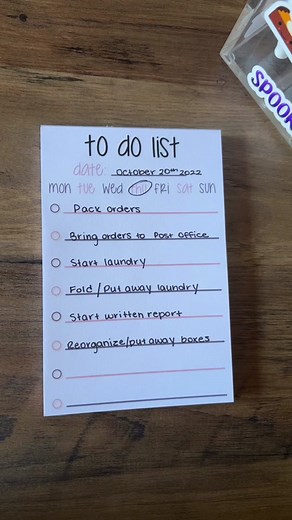 SPOOK
to do list
date: October 20th 2022
mon tue wed thu fri sat sun
Pack orders
Bring orders to Post Office
Start laundry
Fold / Put away laundry
Start written report
Reorganize/put away boxes